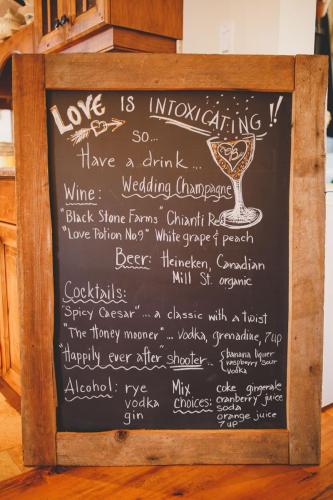 LOVE IS INTOXICATING!!
SO...
Have a drink...
Wine: Wedding Champagne
"Black Stone Farms" Chianti Red
"Love Potion No.9" White grape & peach
Beer: Heineken, Canadian
Mill St. organic
Cocktails:
"Spicy Caesar"... a classic with a twist
"The Honey mooner"... Vodka, grenadine, 7up
"Happily ever after" shooter.. { banana liquer
raspberry sour
vodka
Alcohol: rye
vodka
gin
Mix choices: coke gingerale
cranberry juice
soda
orange juice
7up